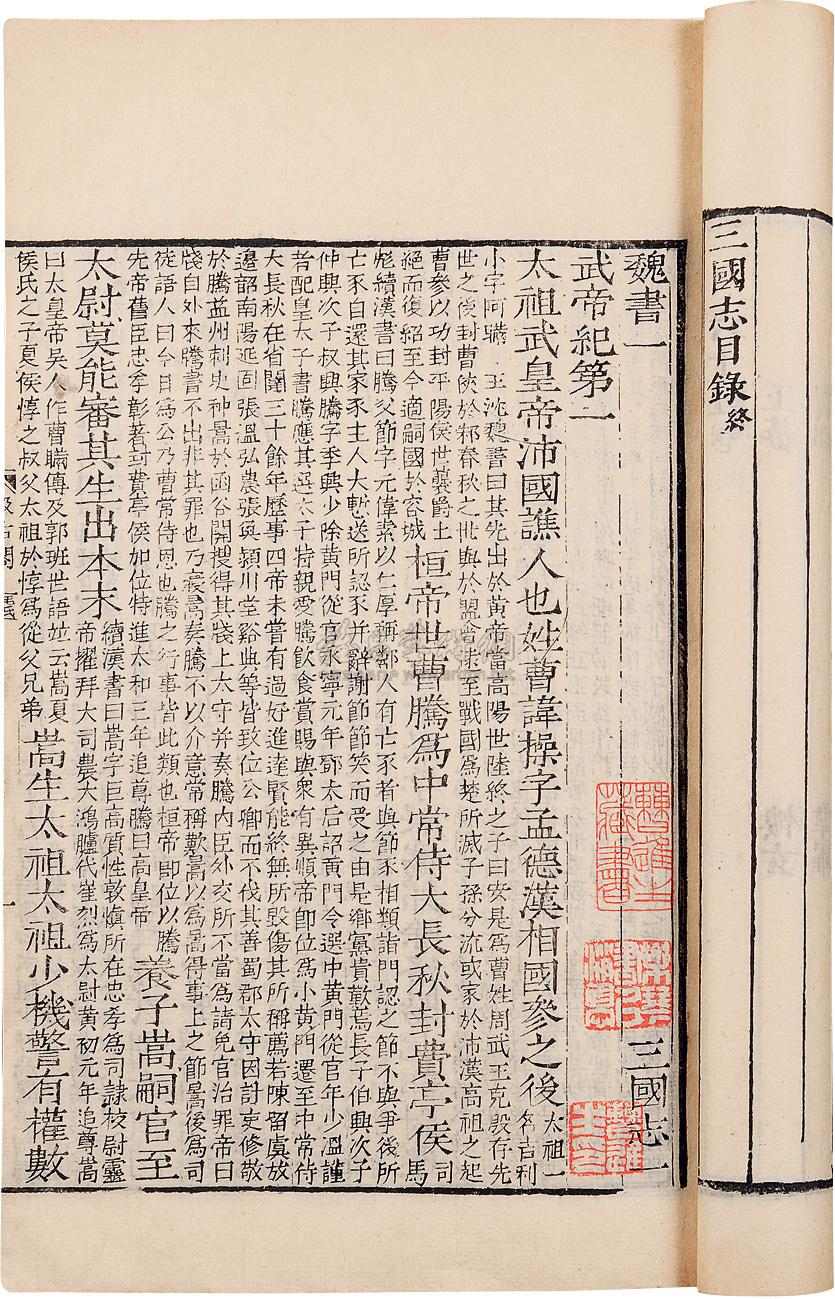 三國志目錄終
魏書一 三國志一
武帝紀第一
太祖武皇帝沛國譙人也姓曹諱操字孟德漢相國參之後太祖一
名吉利
小字阿瞞 王沈魏書曰其先出於黃帝當高陽世陸終之子曰安是爲曹姓周武王克殷存先
世之後封曹俠於邾春秋之世與於盟會逮至戰國爲楚所滅子孫分流或家於沛漢高祖之起
曹參以功封平陽侯世襲爵土
絕而復紹至今適嗣國於容城
桓帝世曹騰爲中常侍大長秋封費亭侯司
馬
彪續漢書曰騰父節字元偉素以仁厚稱鄰人有亡豕者與節豕相類詣門認之節不與爭後所
亡豕自還其家豕主人大慙送所認豕并辭謝節節笑而受之由是鄉黨貴歎焉長子伯興次子
仲興次子叔興騰字季興少除黃門從官永寧元年鄧太后詔黃門令選中黃門從官年少溫謹
者配皇太子書騰應其選太子特親愛騰飲食賞賜與衆有異順帝卽位爲小黃門遷至中常侍
大長秋在省闥三十餘年歷事四帝未嘗有過好進達賢能終無所毀傷其所稱薦若陳留虞放
邊韶南陽延固張溫弘農張奐潁川堂谿典等皆致位公卿而不伐其善蜀郡太守因計吏修敬
於騰益州刺史种暠於函谷關搜得其牋上太守并奏騰內臣外交所不當爲請免官治罪帝曰
牋自外來騰書不出非其罪也乃寢暠奏騰不以介意常稱歎暠以爲暠得事上之節暠後爲司
徒語人曰今日爲公乃曹常侍恩也騰之行事皆此類也桓帝卽位以騰
先帝舊臣忠孝彰著封費亭侯加位特進太和三年追尊騰曰高皇帝
養子嵩嗣官至
太尉莫能審其生出本末
續漢書曰嵩字巨高質性敦慎所在忠孝爲司隸校尉靈
帝擢拜大司農大鴻臚代崔烈爲太尉黃初元年追尊嵩
曰太皇帝吳人作曹瞞傳及郭班世語竝云嵩夏
侯氏之子夏侯惇之叔父太祖於惇爲從父兄弟
嵩生太祖太祖少機警有權數